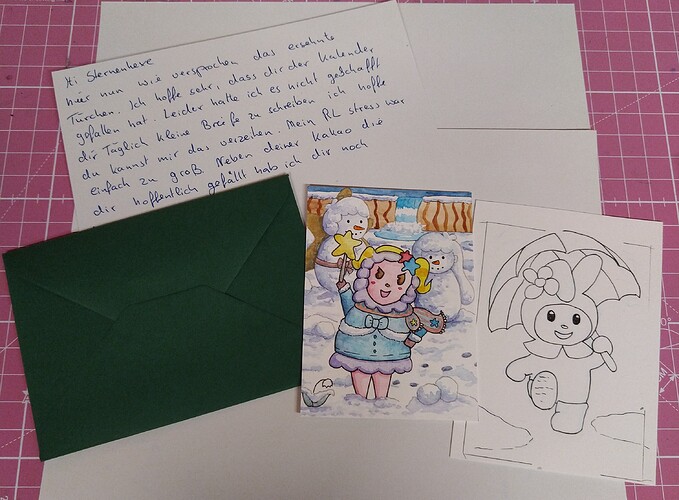 Hi Sternenhexe
hier nun wie versprochen das ersehnte
Türchen. Ich hoffe sehr, dass dir der Kalender
gefallen hat. Leider hatte ich es nicht geschafft
dir Täglich kleine Briefe zu schreiben ich hoffe
du kannst mir das verzeihen. Mein RL stress war
einfach zu groß. Neben deiner Kakao die
dir hoffentlich gefällt hab ich dir noch